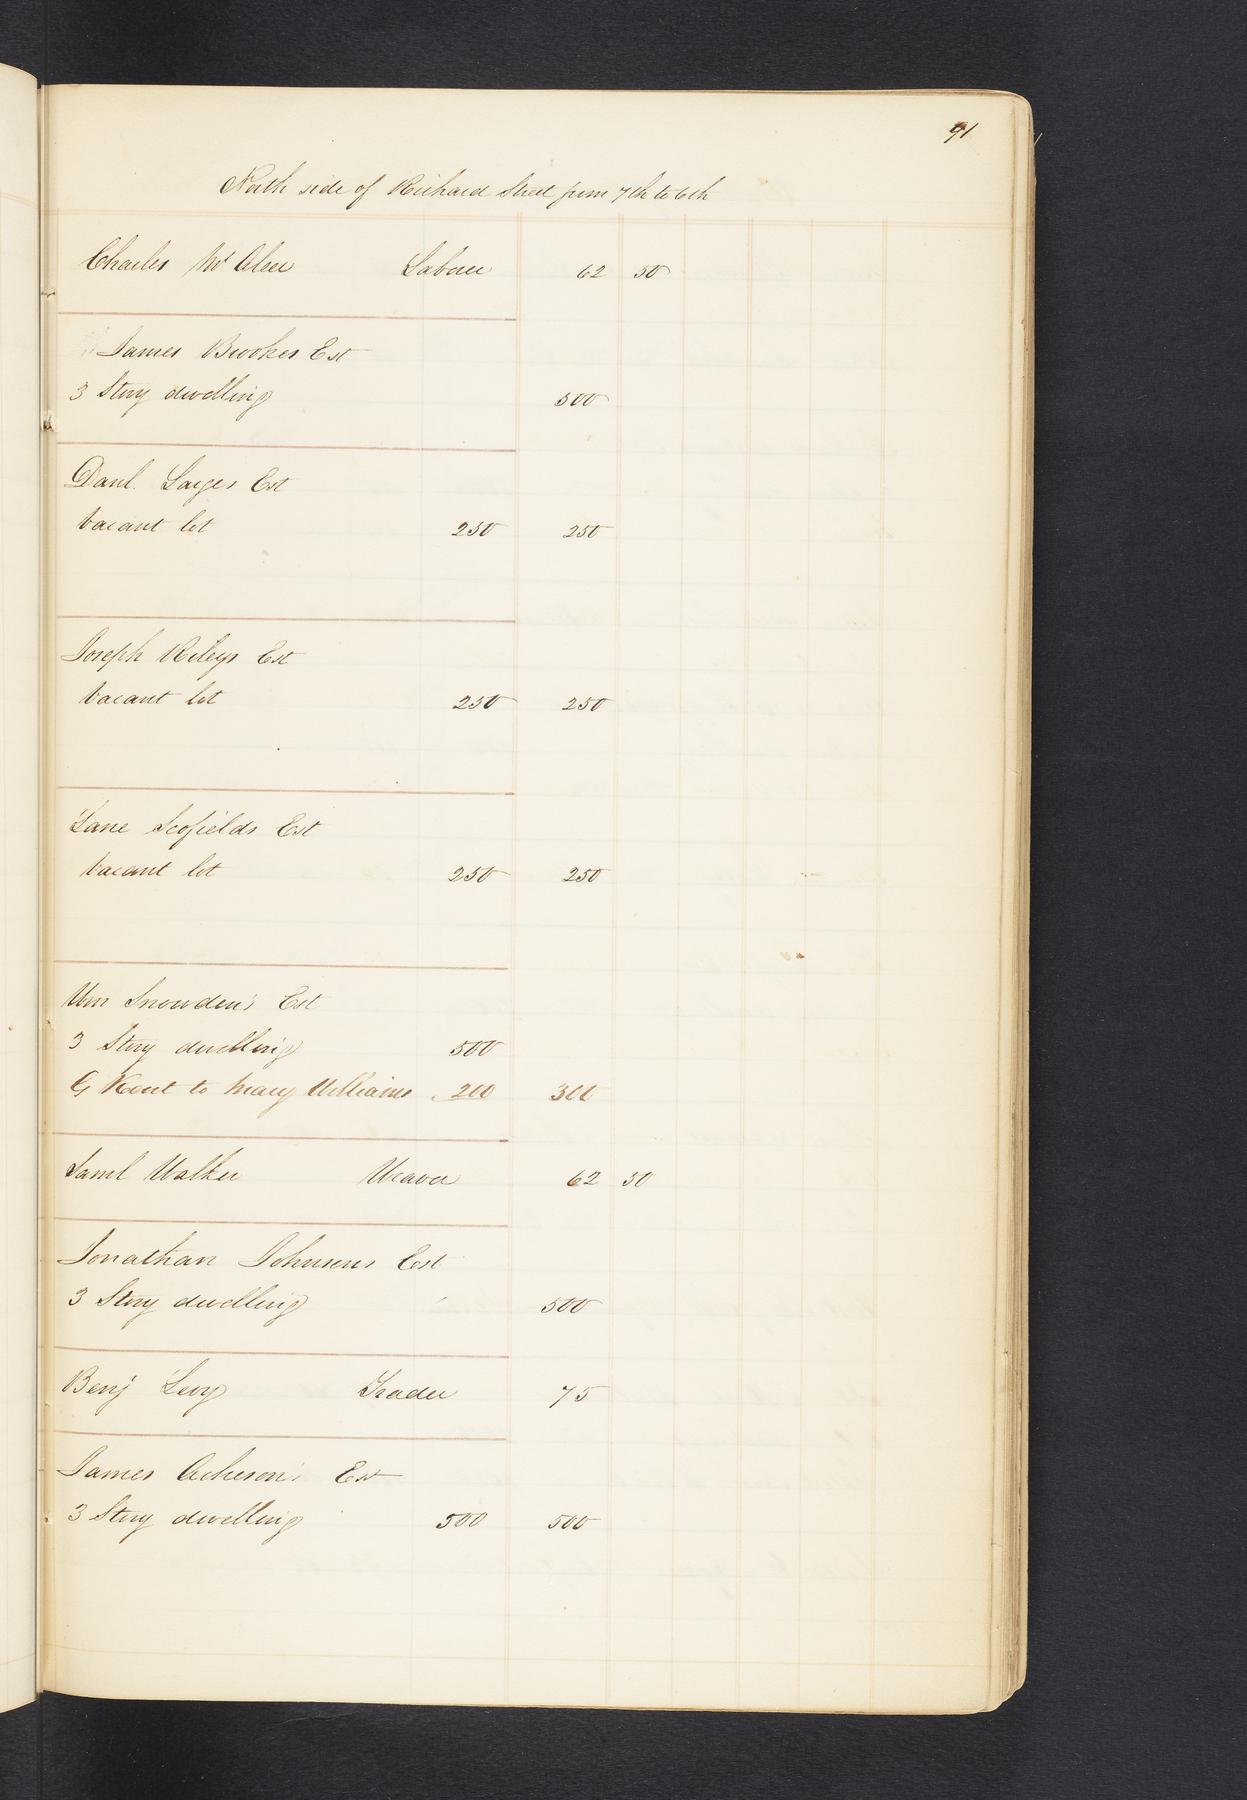 91
North side of Richard Street from 7th to 6th
Charles McAleer Labour 62 50
James Brookes Est
3 Story dwelling 500
Danl. Larges Est
Vacant lot 250 250
Joseph Rileys Est
Vacant lot 250 250
Lane Scofields Est
Vacant lot 250 250
Wm Snowden's Est
3 Story dwelling 500
G Rent to Mary Williams 200 300
Saml Walker Weaver 62 50
Jonathan Johnsons Est
3 Story dwelling 500
Benj Levy Trader 75
James Acheson's Est
3 Story dwelling 500 500